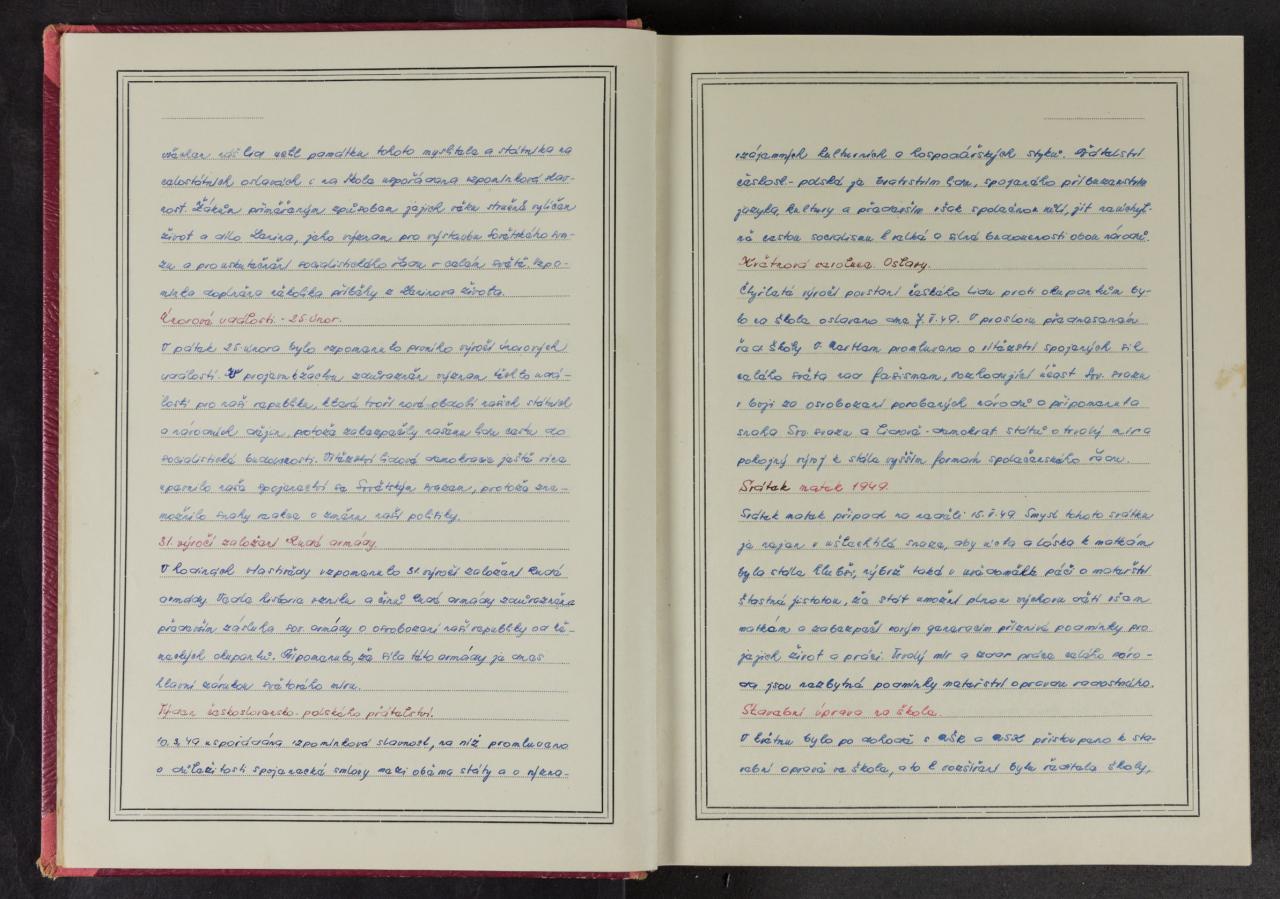 všechen náš lid uctil památku tohoto myslitele a státníka na
celostátních oslavách i na škole uspořádána vzpomínková slav-
nost. Žákům přiměřeným způsobem jejich věku stručně vylíčen
život a dílo Lenina, jeho význam pro výstavbu Sovětského sva-
zu a pro uskutečnění socialistického řádu v celém světě. Vzpo-
mínka doplněna několika příběhy z Leninova života.
Únorové události - 25. únor.
V pátek 25. února bylo vzpomenuto prvního výročí únorových
událostí. V projevu k žactvu zdůrazněn význam těchto udá-
lostí pro naši republiku, která tvoří nové období našich státních
a národních dějin, protože zabezpečily našemu lidu cestu do
socialistické budoucnosti. Vítězství lidové demokracie ještě více
upevnilo naše spojenectví se Sovětským svazem, protože zne-
možnilo snahy reakce o změnu naší politiky.
31. výročí založení Rudé armády.
V hodinách vlastivědy vzpomenuto 31. výročí založení Rudé
armády. Vedle historie vzniku a činů Rudé armády zdůrazněna
především zásluha sov. armády o osvobození naší republiky od ně-
meckých okupantů. Připomenuto, že síla této armády je dnes
hlavní zárukou světového míru.
Týden československo-polského přátelství.
10.3.49 uspořádána vzpomínková slavnost, na níž promluveno
o důležitosti spojenecké smlouvy mezi oběma státy a o význa-
vzájemných kulturních a hospodářských styků. Přátelství
českosl.-polské je bratrstvím lidu, spojeného příbuzenstvím
jazyka, kultury a především však společnou vůlí, jít neúchyl-
ně cestou socialismu k velké a silné budoucnosti obou národů.
Květnová revoluce. Oslavy.
Čtyřleté výročí povstání českého lidu proti okupantům by-
lo na škole oslaveno dne 7.V.49. V proslovu předneseném
řed. školy V. promluveno o vítězství spojených sil
celého světa nad fašismem, rozhodující účast Sov. svazu
v boji za osvobození porobených národů a připomenuta
snaha Sov. svazu a lidově-demokrat. států o trvalý mír a
pokojný vývoj k stále vyšším formám společenského řádu.
Svátek matek 1949.
Svátek matek připadl na neděli 15.V.49. Smysl tohoto svátku
je nejen v ušlechtilé snaze, aby úcta a láska k matkám
byla stále hlubší, nýbrž také v uvědomělé péči o mateřství
šťastné jistotou, že stát umožní plnou výchovu dětí všem
matkám a zabezpečí novým generacím příznivé podmínky pro
jejich život a práci. Trvalý mír a zdar práce celého náro-
da jsou nezbytné podmínky mateřství opravdu radostného.
Stavební úprava na škole.
V květnu bylo po dohodě s MŠR a MNV přistoupeno k sta-
vební úpravě ve škole, a to k rozšíření bytu ředitele školy,